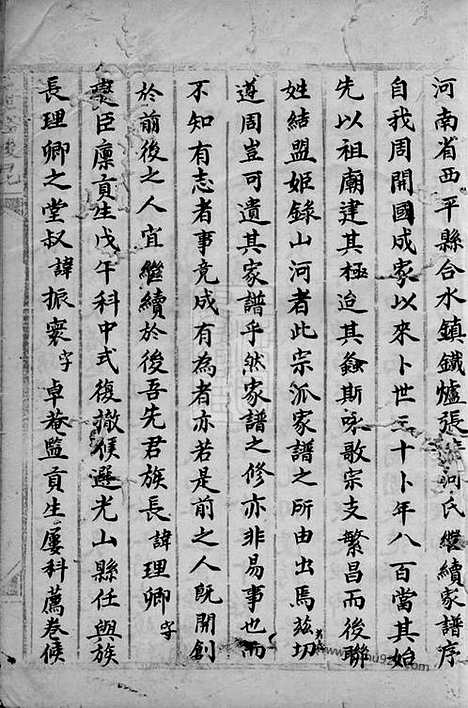 河南省西平縣合水鎮鐵爐張 何氏繼續家譜序
自我周開國成家以來卜世三十卜年八百當其始
先以祖廟建其極迨其螽斯咏歌宗支繁昌而後聯
姓結盟姬錄山河者此宗派家譜之所由出焉茲切
遵周豈可遺其家譜乎然家譜之修亦非易事也而
不知有志者事竟成有為者亦若是前之人既開創
於前後之人宜繼續於後吾先君族長諱理卿字
襲臣廩貢生戊午科中式復撤候選光山縣任與族
長理卿之堂叔諱振寰字卓菴監貢生屢科薦卷候